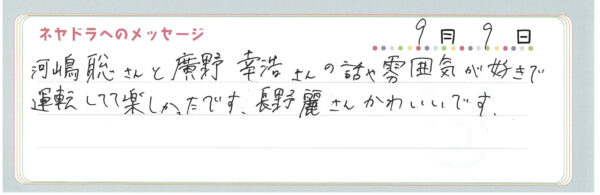 ネヤドラへのメッセージ
9月9日
河嶋聡さんと廣野幸浩さんの話や雰囲気が好きで
運転してて楽しかったです、長野麗さんかわいいです、